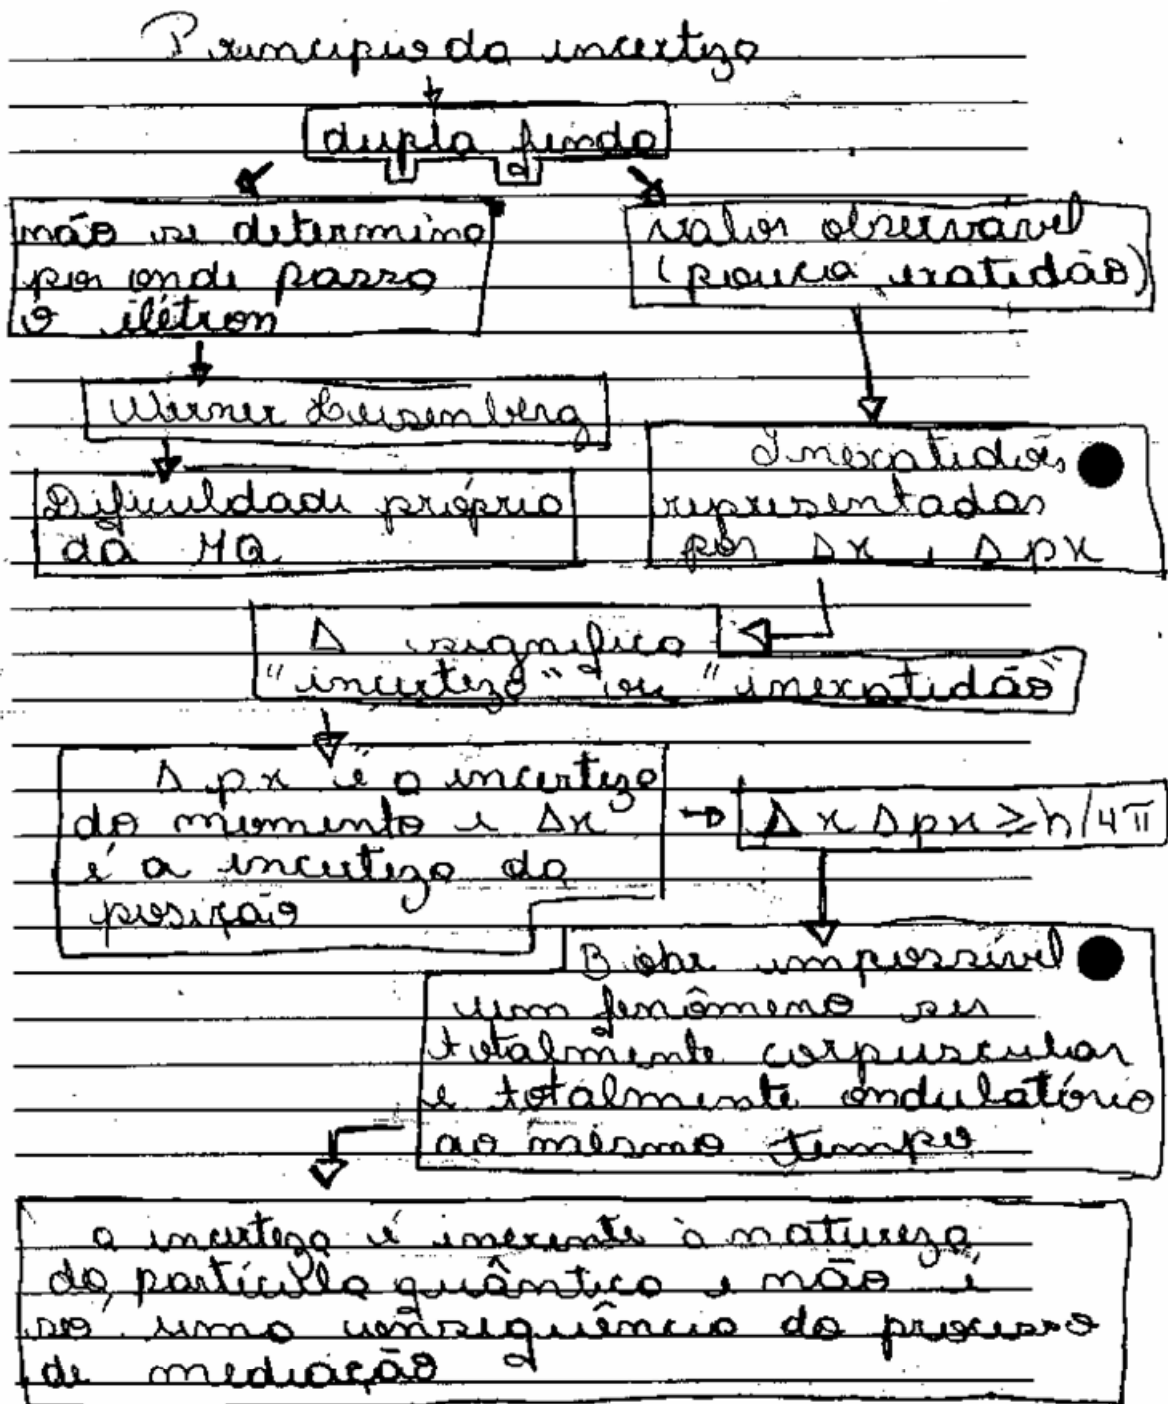 Principio da incerteza
dupla fenda
não se determina
por onde passa
o elétron
valor observável
(pouca exatidão)
Werner Heisenberg
Dificuldade própria
da MQ
Inexatidões
representadas
por Δx, Δpx
Δ significa
"incerteza" ou "inexatidão"
Δpx é a incerteza
do momento e Δx
é a incerteza da
posição
Δx Δpx ≥ h/4π
impossível
um fenômeno ser
totalmente corpuscular
e totalmente ondulatório
ao mesmo tempo
a incerteza é inerente à natureza
da partícula quântica e não é
só uma consequência do processo
de mediação